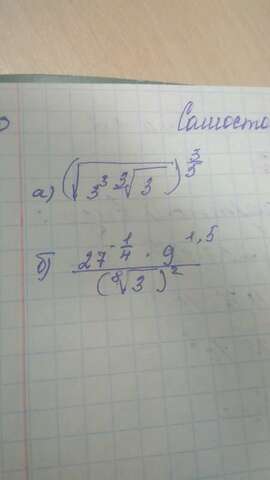 Самосто
а) (√(3³ ∛3))^(3/5)
б) (27^(-1/4) · 9^(1,5)) / (⁸√3)²